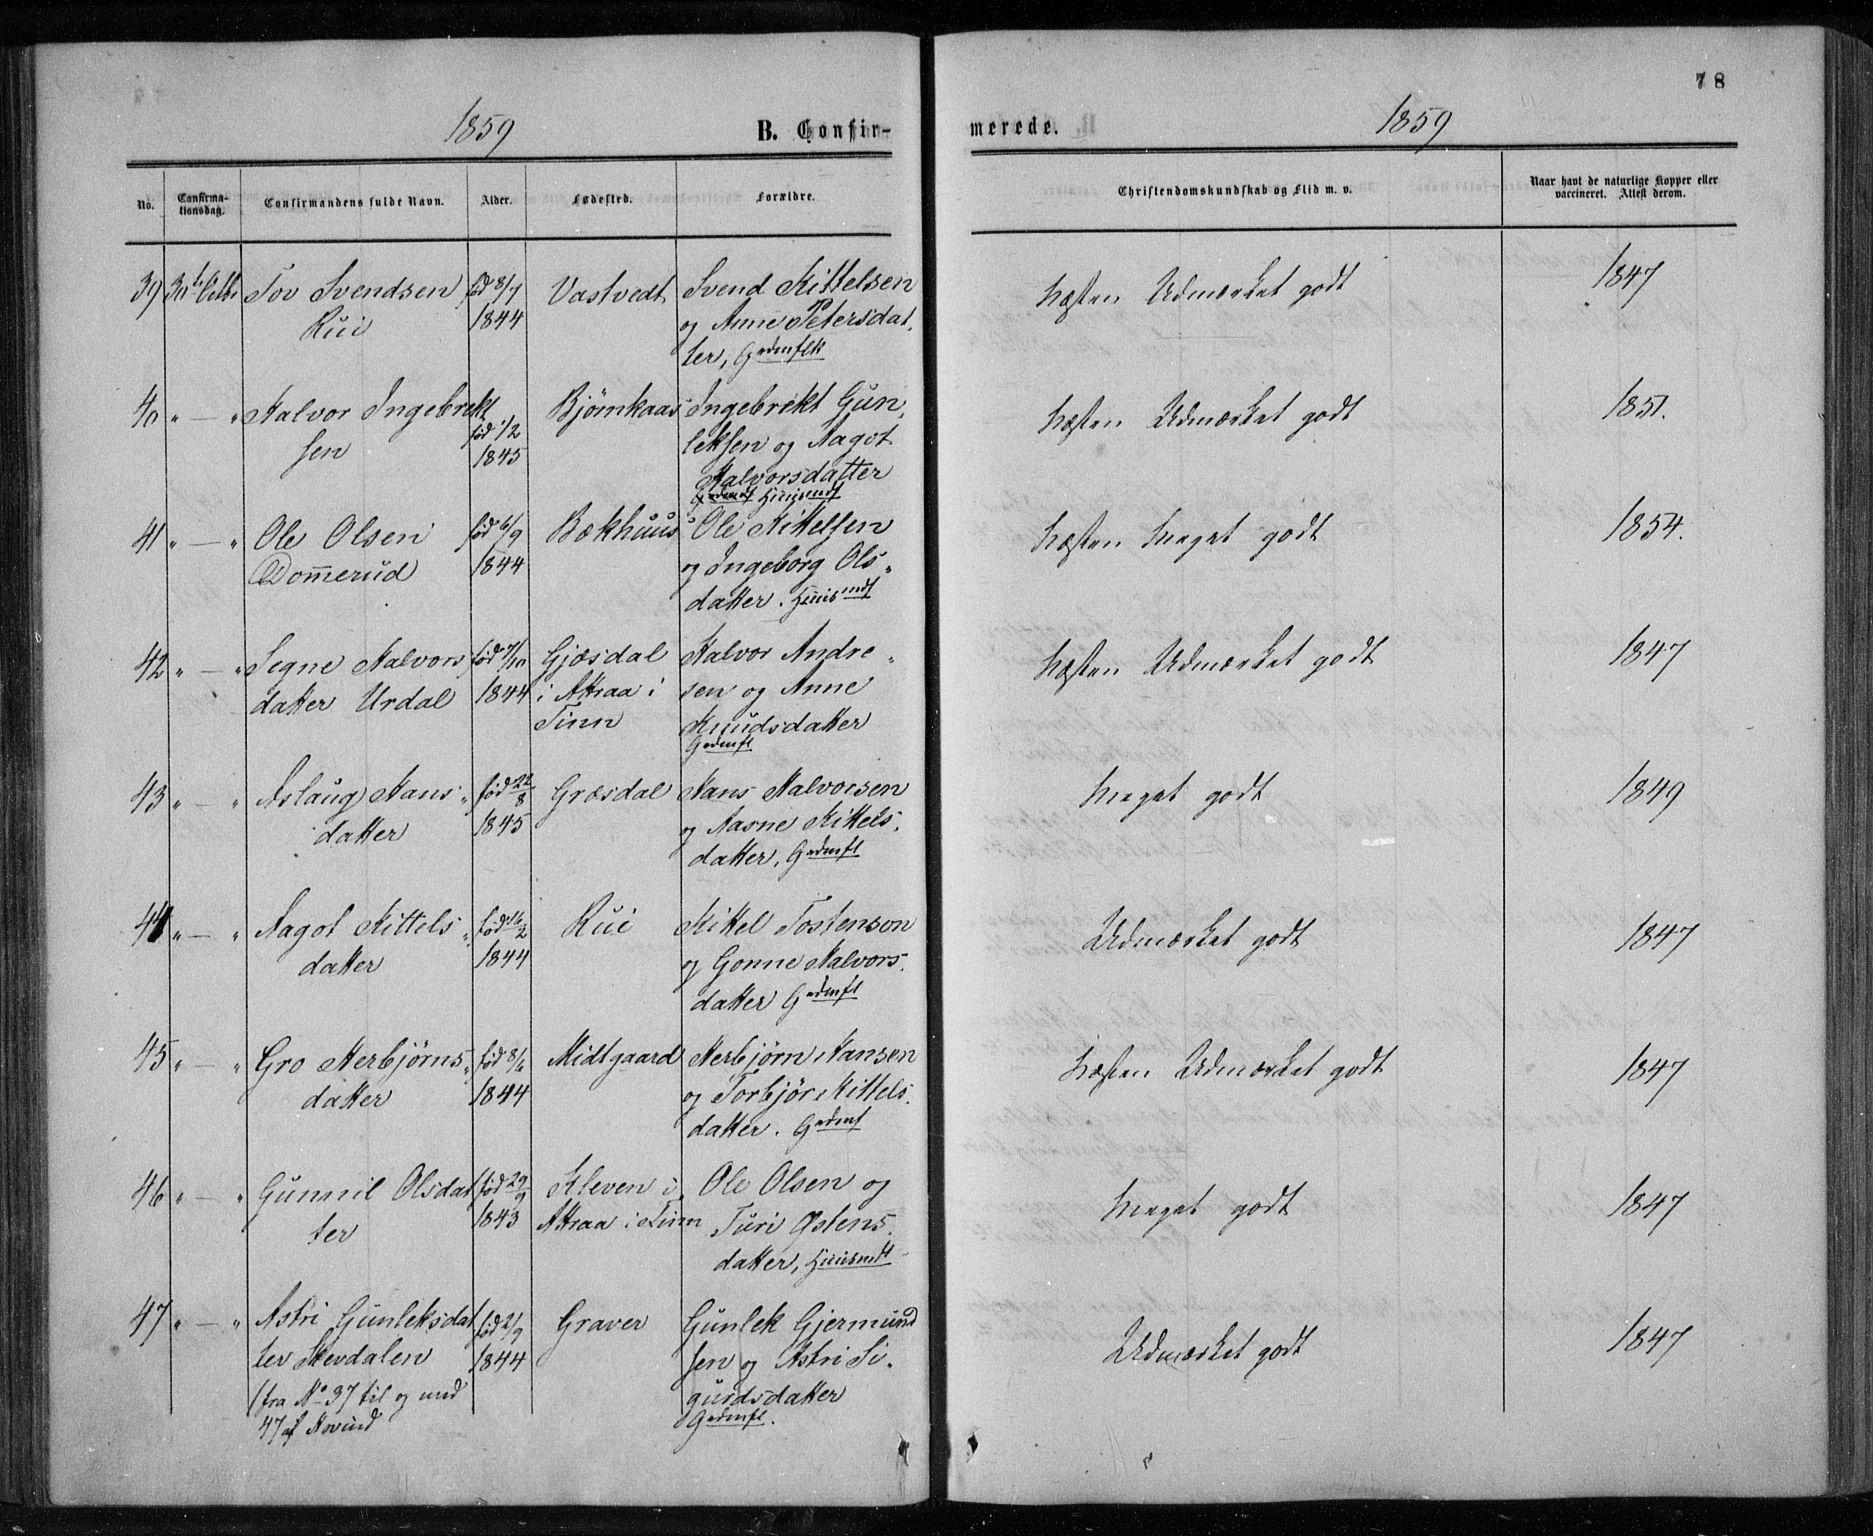 78
1859
B. Confir-
merede.
1859
No.
Confirma-
tionsdag.
Confirmandens fulde Navn.
Alder.
Fødested.
Forældre.
Christendomskundskab og Flid m. v.
Naar havt de naturlige Kopper eller
vaccineret. Attest derom.
39 30te Octbr Tov Svendsen
Rui
fød 8/7
1844
Vastvedt
Svend Kittelsen
og Anne Petersdat,
ter, Grdmflk
Næsten Udmærket godt
1847
40 " — " Halvor Ingebrekt
sen
fød 1/2
1845
Bjørnkaas
Ingebrekt Gun,
leksen og Aagot
Halvorsdatter
Huusmdf
Næsten Udmærket godt
1851.
41 " — " Ole Olsen
Dom̅erud
fød 6/9
1844
Bækhuus
Ole Kittelsen
og Ingeborg Ols,
datter. Huusmdf
Næsten Meget godt
1854.
42 " — " Segne Halvors
datter Urdal
fød 7/10
1844
Gjøsdal
i Attraa i
Tinn
Halvor Andre,
sen og Anne
Knudsdatter
Grdmfl
Næsten Udmærket godt
1847
43 " — " Aslaug Hans,
datter
fød 22/8
1845
Græsdal
Hans Halvorsen
og Aasne Kittels,
datter, Grdmfl
Meget godt
1849
44 " — " Aagot Kittels,
datter
fød 16/2
1844
Rui
Kittel Tostenson
og Gonne Halvors,
datter Grdmfl
Udmærket godt
1847
45 " — " Gro Herbjørns,
datter
fød 8/6
1844
Midtgaard
Herbjørn Hansen
og Torbjør Kittels,
datter. Grdmf
Næsten Udmærket godt
1847
46 " — " Gunnil Olsdat
ter
fød 29/9
1843
Kleven i
Attraa i Tinn
Ole Olsen og
Turi Østens,
datter, Huusmdf
Meget godt
1847
47 " — " Astri Gunleksdat
ter Skevdalen
fød 21/9
1844
Graver
Gunlek Gjermund
sen og Astri Si,
gurdsdatter
Grdmfl.
Udmærket godt
1847
(fra No 37 til og med
47 af Hovind